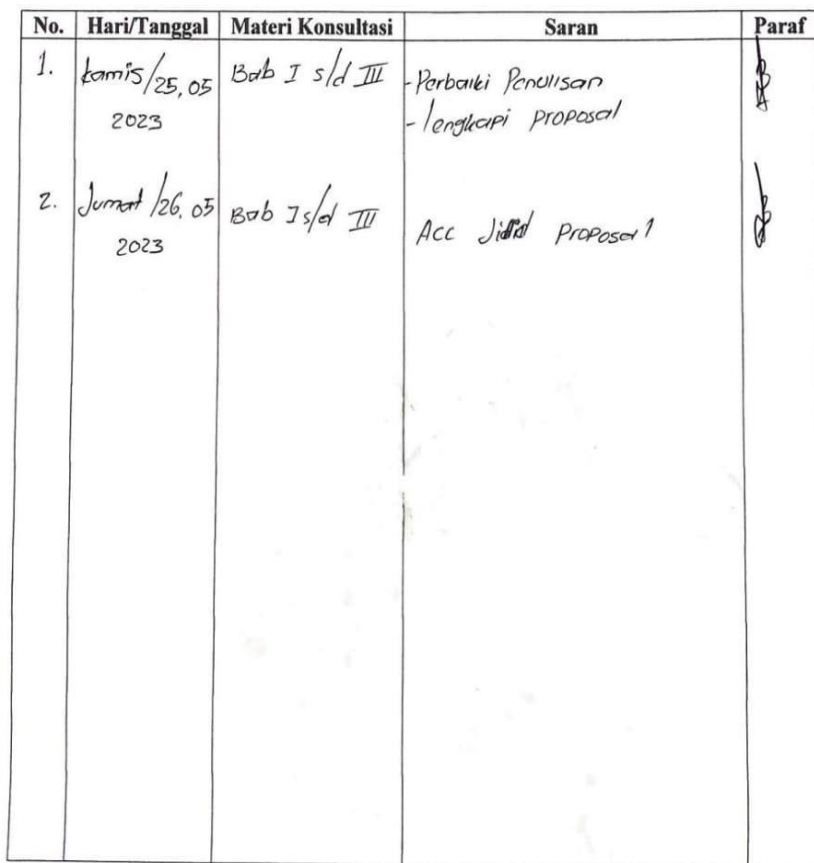 No. Hari/Tanggal Materi Konsultasi Saran Paraf
1. Kamis/25, 05 Bab I s/d III -Perbaiki Penulisan
2023 - lengkapi proposal
2. Jumat /26, 05 Bab I s/d III Acc Jilid Proposal
2023